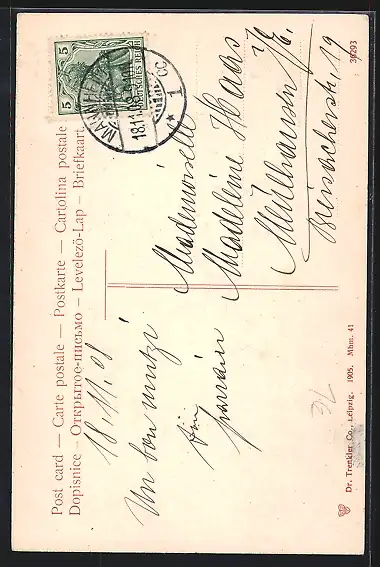 Post card — Carte postale — Postkarte — Cartolina postale
Dopisnice — Открытое письмо — Levelező-Lap — Briefkaart
5
5
DEUTSCHES REICH
MANNHEIM
18.11.08
* 1
18.11.08
Un bon mutzi
parrain
Mademoiselle
Madeleine Haas
Mülhausen i/E.
19
Dr. Trenkler Co., Leipzig. 1905. Mhm. 41
39293